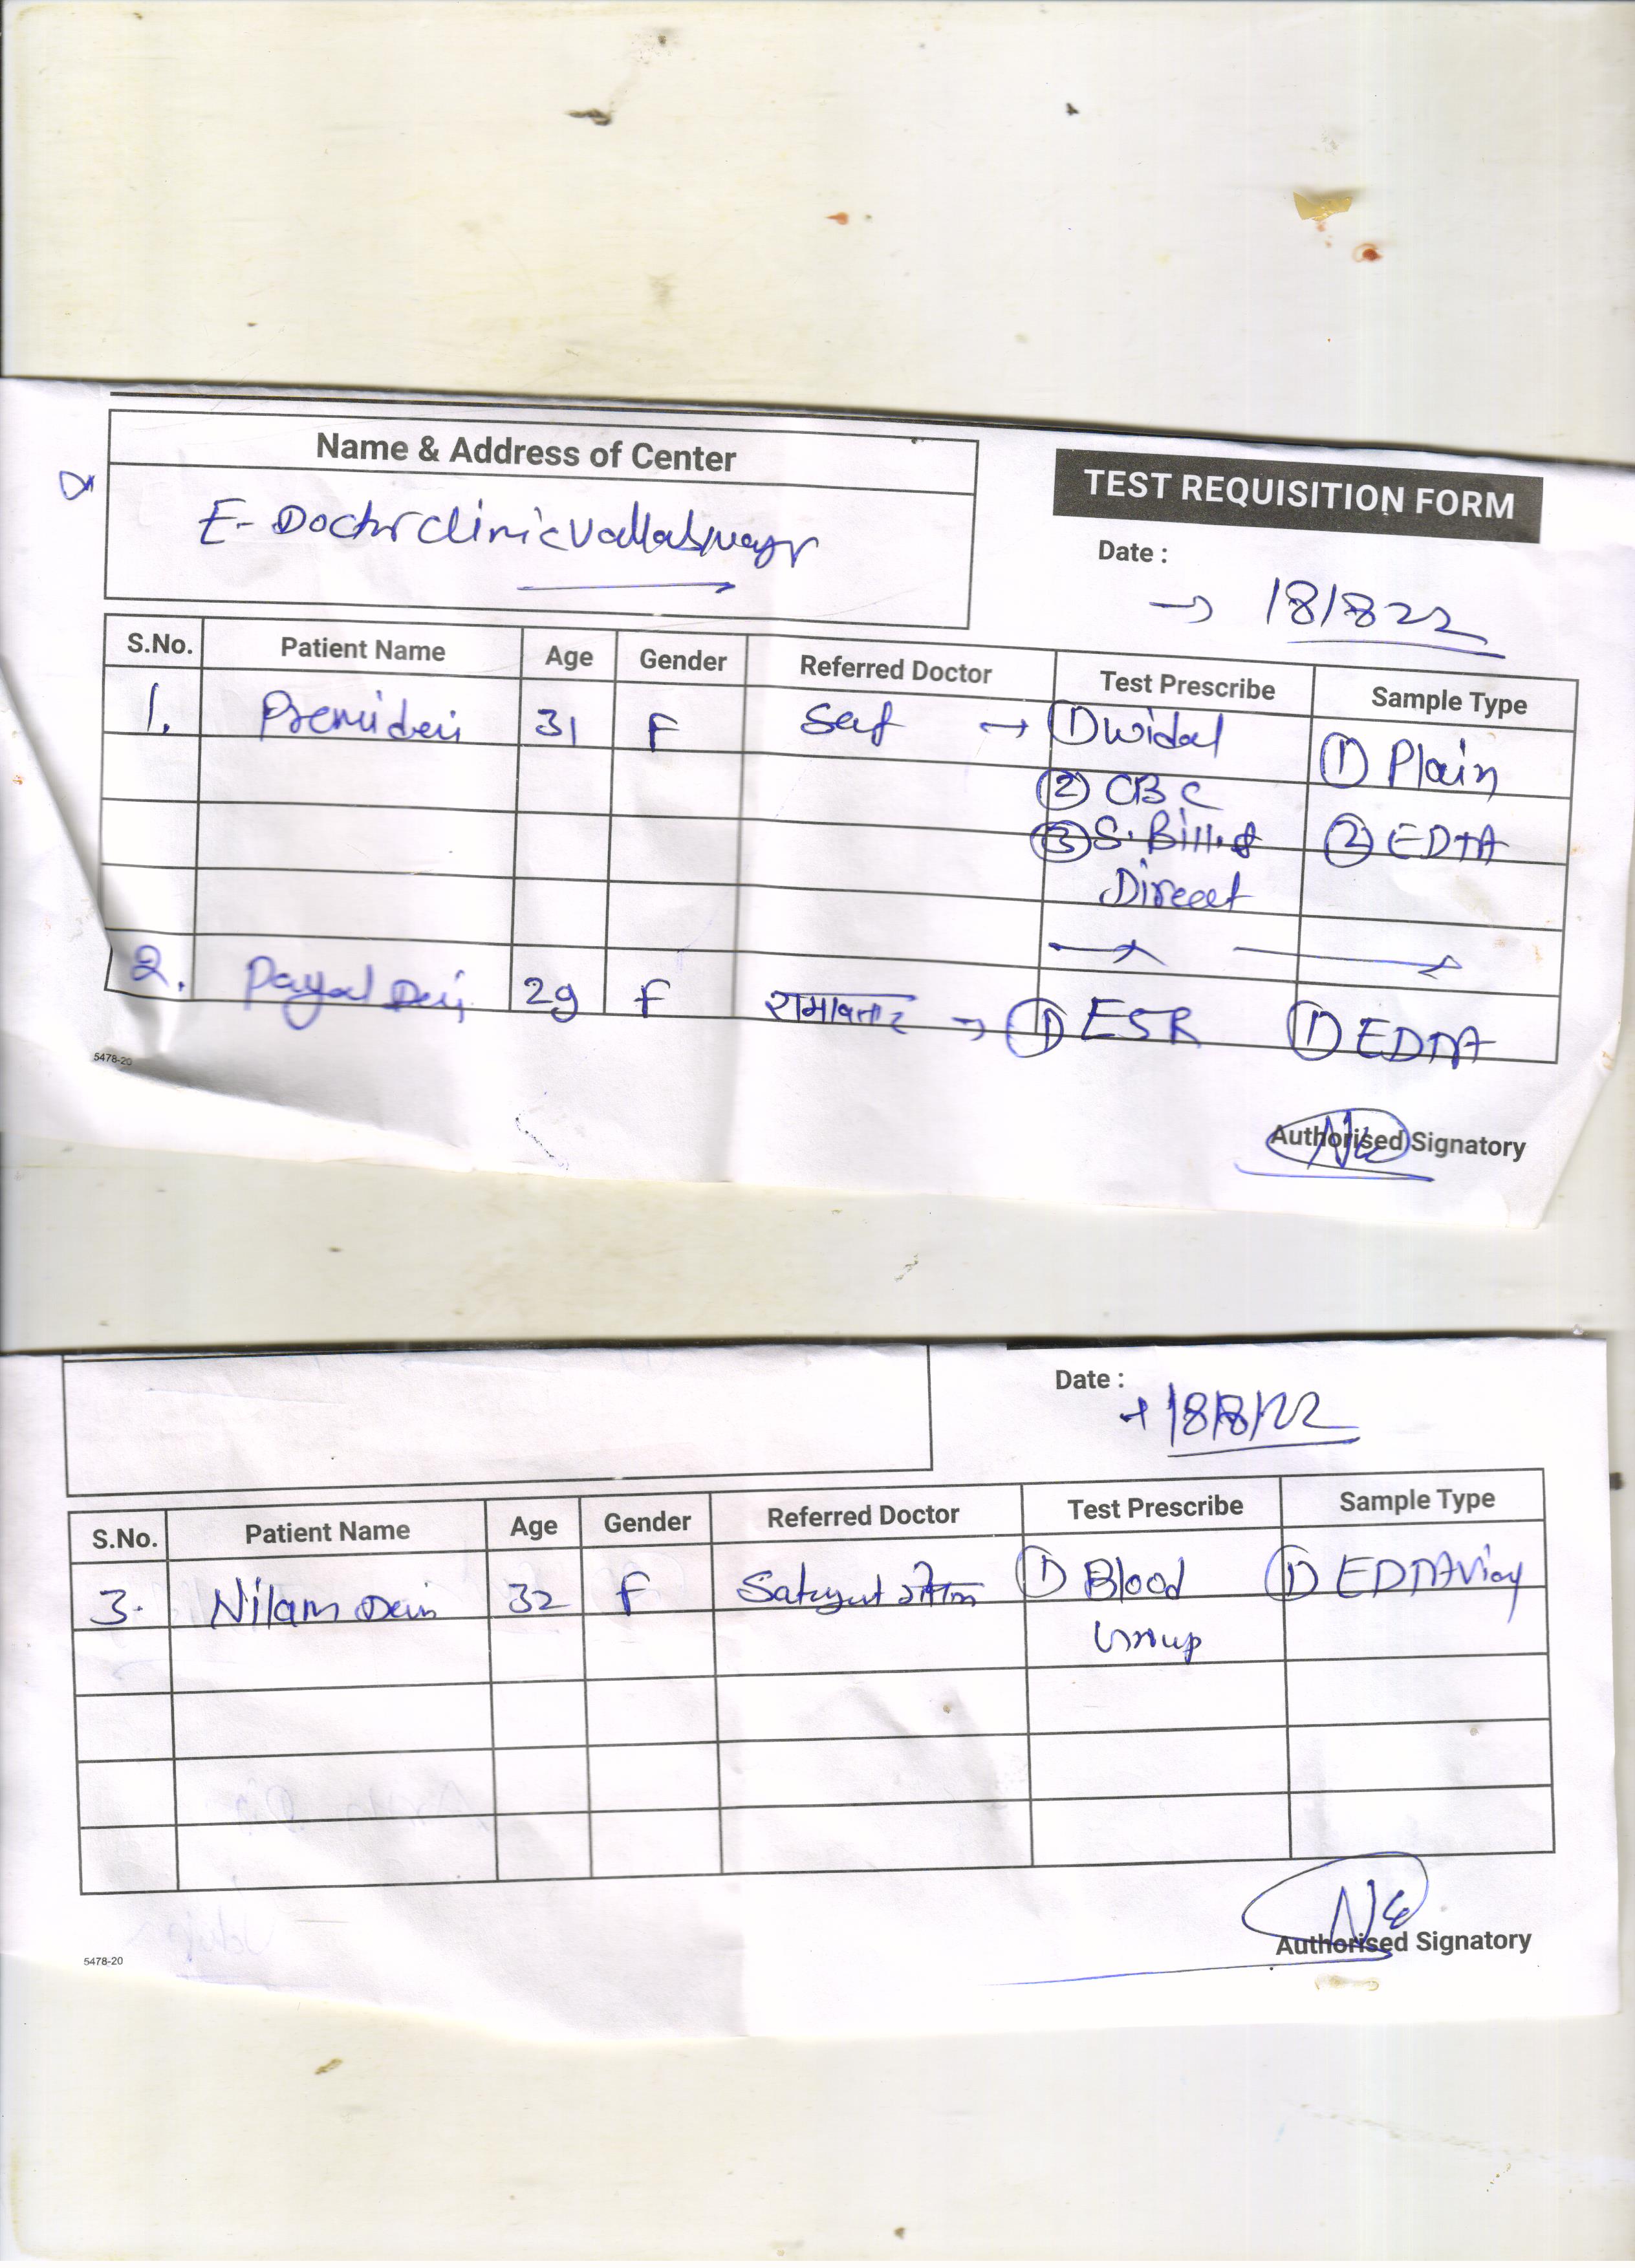 Name & Address of Center
E-Doctor clinic Vallabnagr
TEST REQUISITION FORM
Date :
→ 18/8/22
S.No. Patient Name Age Gender Referred Doctor Test Prescribe Sample Type
1. Premi devi 31 F Self → ① widal ① Plain
② CBC
③ S. Bill. ② EDTA
Direect
2. Payal Devi 29 F रामावतार → ① ESR ① EDTA
5478-20
Authorised Signatory
Date :
18/8/22
S.No. Patient Name Age Gender Referred Doctor Test Prescribe Sample Type
3. Nilam Devi 32 F ① Blood ① EDTA
Group
Authorised Signatory
5478-20